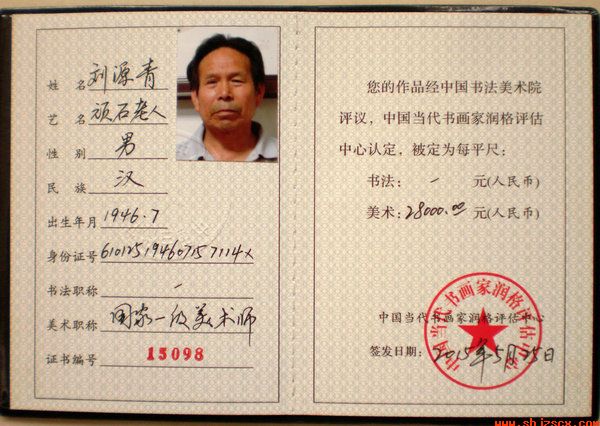 姓 名 刘源青
艺 名 顽石老人
性 别 男
民 族 汉
出生年月 1946.7
身份证号 610125194607157114X
书法职称 —
美术职称 国家一级美术师
证书编号 15098
您的作品经中国书法美术院
评议，中国当代书画家润格评估
中心认定，被定为每平尺：
书法： — 元(人民币)
美术：28000.00 元(人民币)
中国当代书画家润格评估中心
签发日期：2015年5月25日
中国当代书画家润格评估中心
www.shjzscx.com